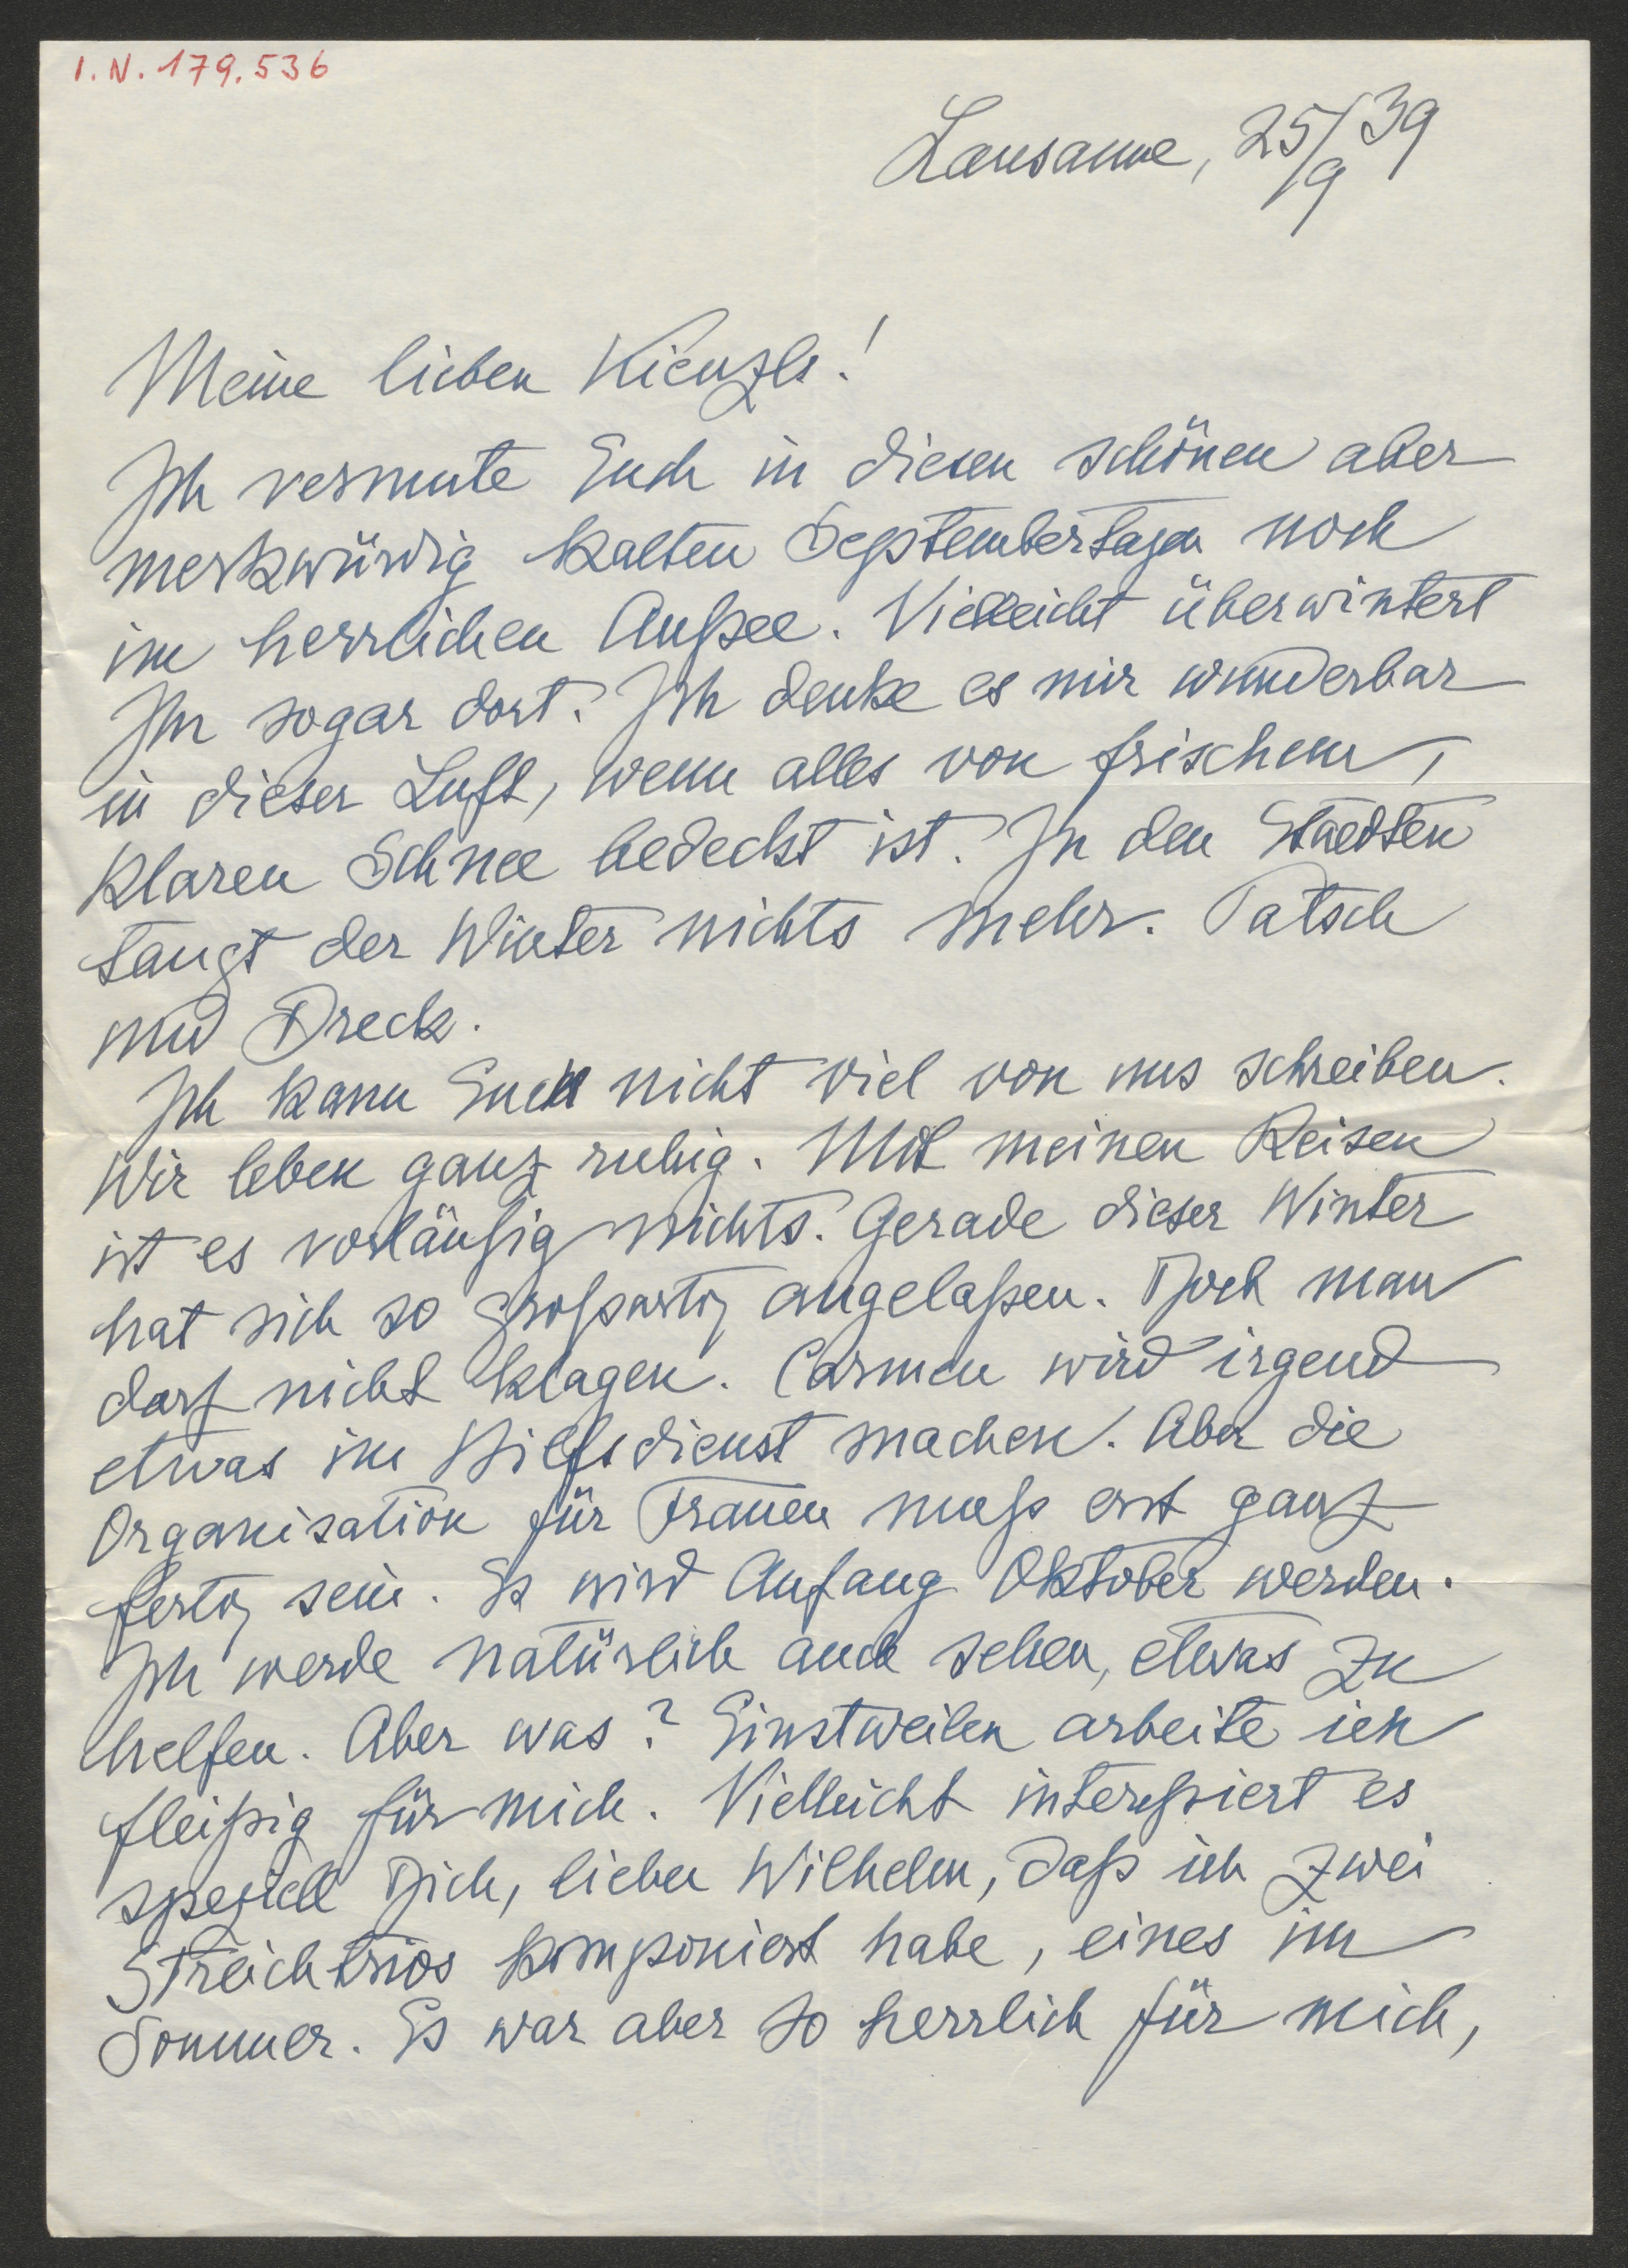 I. N. 179.536
Lausanne, 25/9 39
Meine lieben Kienzls!
Ich vermute Euch in diesen schönen aber
merkwürdig kalten Septembertagen noch
im herrlichen Außee. Vielleicht überwintert
Ihr sogar dort. Ich denke es mir wunderbar
in dieser Luft, wenn alles von frischem,
klaren Schnee bedeckt ist. In den Staedten
taugt der Winter nichts mehr. Patsch
und Dreck.
Ich kann Euch nicht viel von uns schreiben.
Wir leben ganz ruhig. Mit meinen Reisen
ist es vorläufig nichts. Gerade dieser Winter
hat sich so großartig angelaßen. Doch man
darf nicht klagen. Carmen wird irgend
etwas im Hilfsdienst machen. Aber die
Organisation für Frauen muß erst ganz
fertig sein. Es wird Anfang Oktober werden.
Ich werde natürlich auch sehen, etwas zu
helfen. Aber was? Einstweilen arbeite ich
fleißig für mich. Vielleicht intereßiert es
speziell Dich, lieber Wilhelm, daß ich zwei
Streichtrios komponiert habe, eines im
Sommer. Es war aber so herrlich für mich,